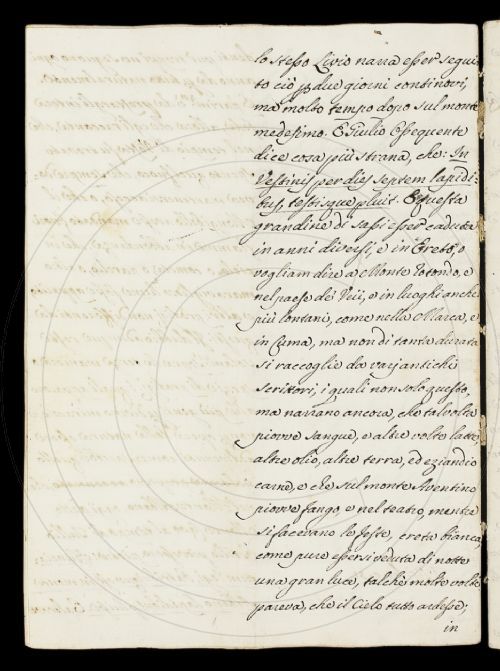 lo stesso Livio narra esser segui-
to ciò p due giorni continovi,
ma molto tempo dopo sul monte
medesimo. E Giulio Ossequente
dice cosa più strana, che: In
Vestinis per dies septem lapidi-
bus, testisque pluit. E questa
grandine di sassi esser caduta
in anni diversi, e in Ereto, o
vogliam dire a Monte Rotondo, e
nel paese de' Veii, e in luoghi anche
più lontani, come nella Marca, e
in Cuma, ma non di tanta durata
si raccoglie da varj antichi
scrittori, i quali non solo questo,
ma narrano ancora, che talvolta
piovve sangue, e altre volte latte,
altre olio, altre terra, ed eziandio
carne, e che sul monte Aventino
piovve fango, e nel teatro, mentre
si facevano le feste, creta bianca,
come pure essersi veduta di notte
una gran luce, talchè molte volte
pareva, che il Cielo tutto ardesse;
in